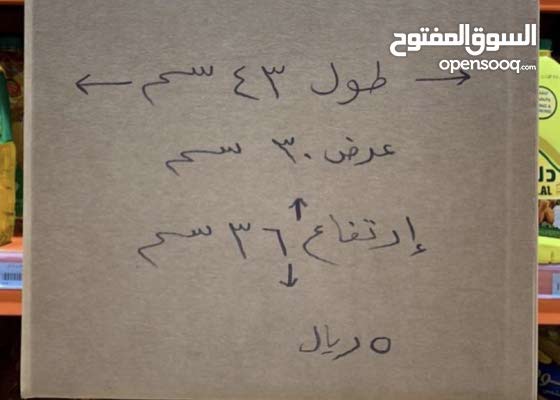 السوق المفتوح
opensooq.com
طول ٤٣ سم
عرض ٣٠ سم
إرتفاع ٣٦ سم
٥ ريال